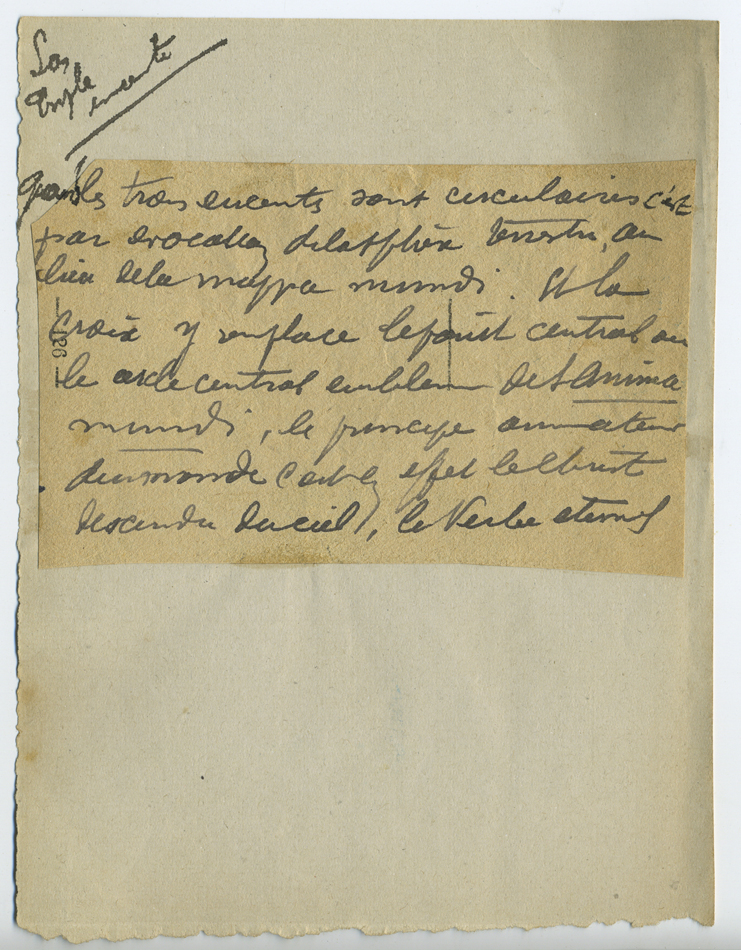 Les
Triple
enceinte
quand les trois enceintes sont circulaires c'est
par évocation de la sphère terrestre, au
lieu de la mappa mundi. Et la
croix y remplace le point central ou
le cercle central emblème de l'Anima
mundi, le principe animateur
du monde c'est en effet le Christ
descendu du ciel, le Verbe éternel
126